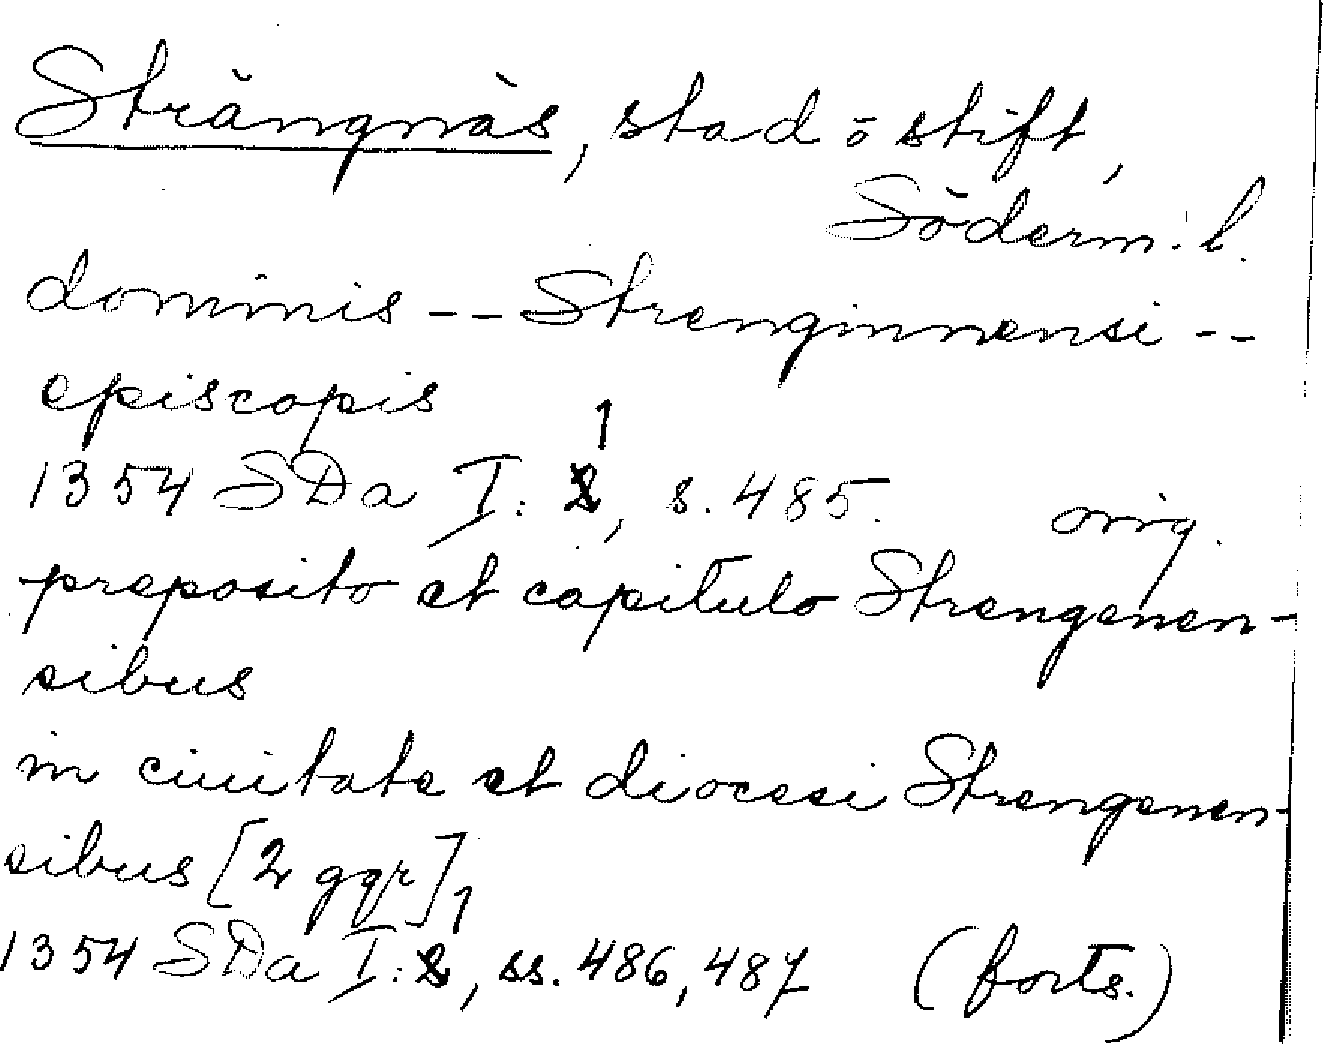 Strängnäs, stad o stift,
Söderm. l.
dominis -- Strenginnensi --
episcopis
1354 SDa I: 1, s. 485. orig.
preposito et capitulo Strengenen-
sibus
in ciuitate et diocesi Strengenen-
sibus [2 ggr]
1354 SDa I: 1, ss. 486, 487 (forts.)